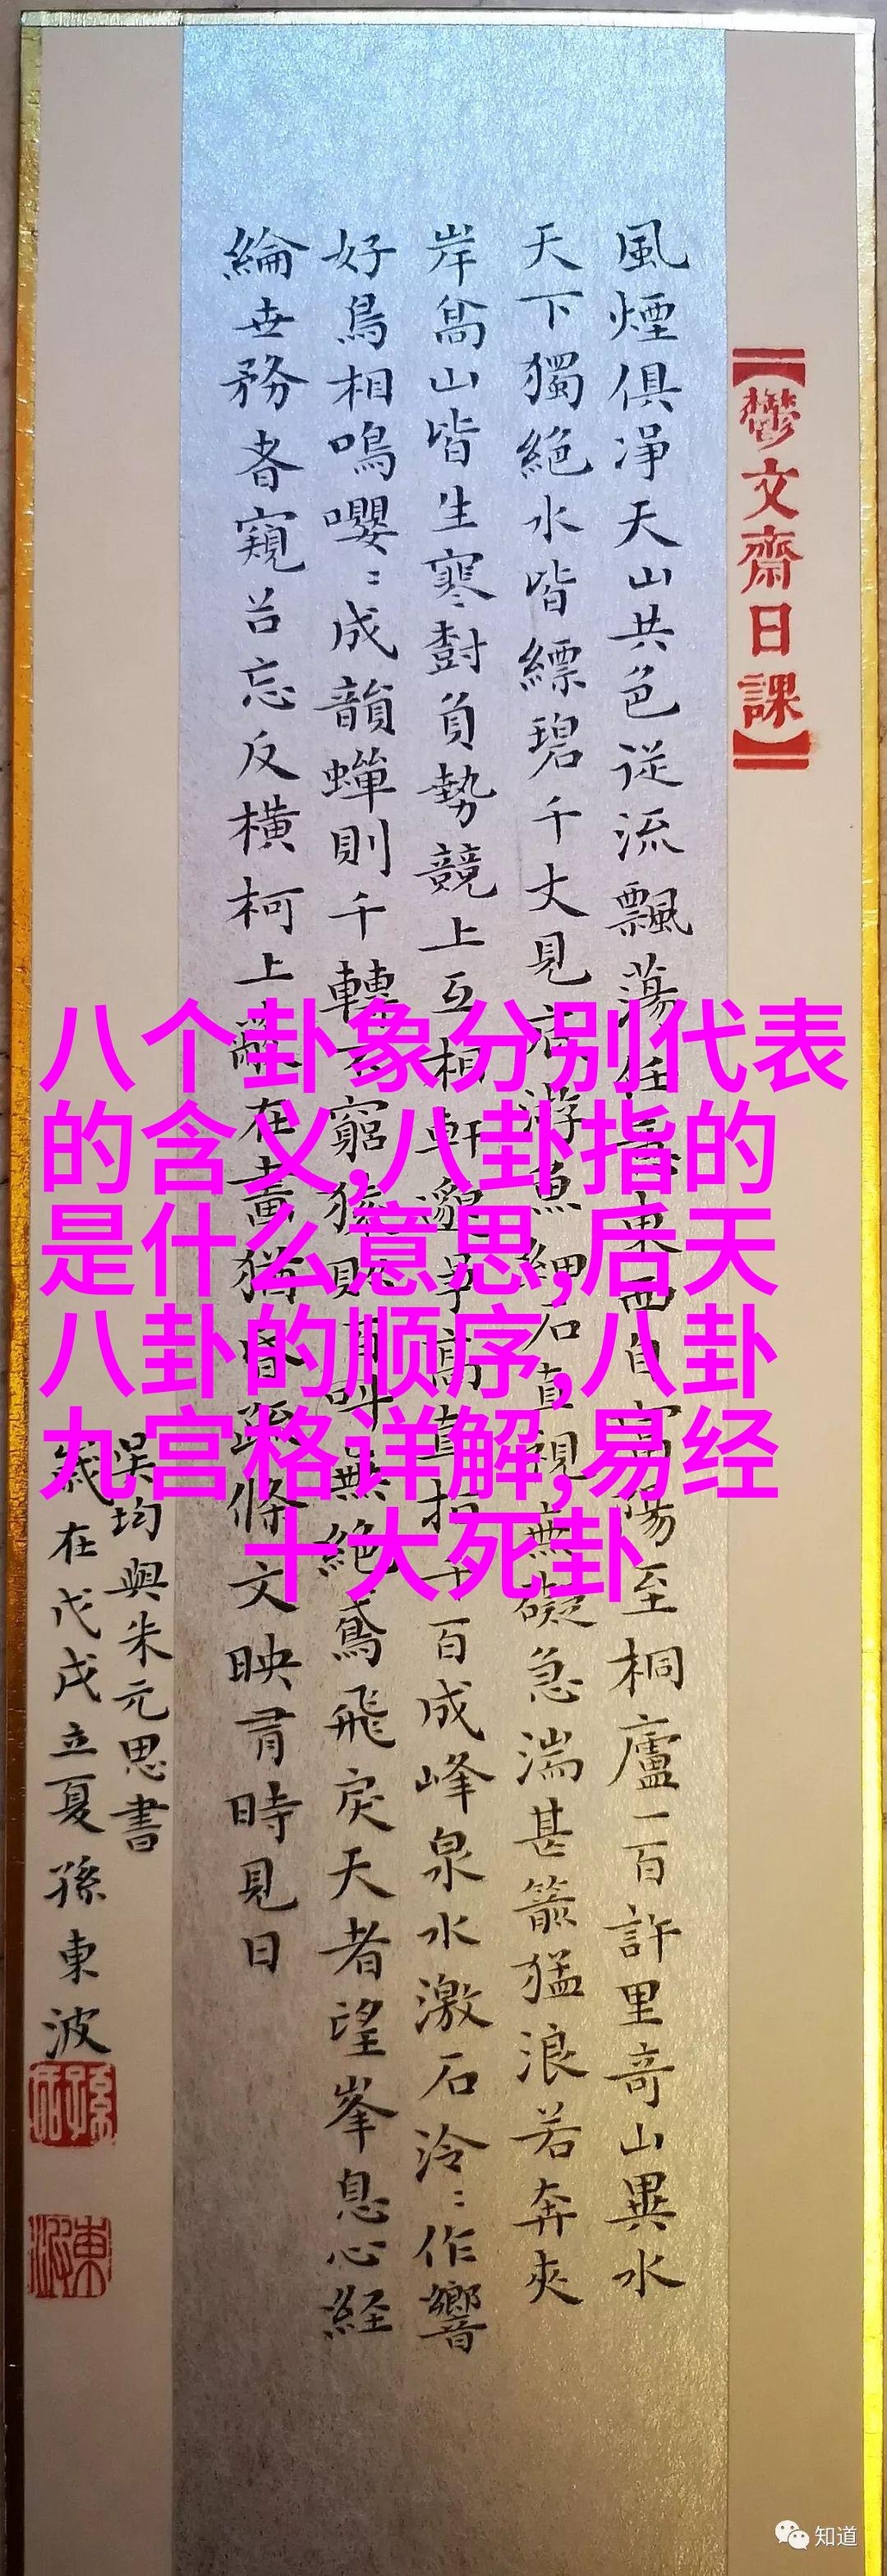 【鬱文齋日課】
風煙俱淨天山共色從流飄蕩任東西自富陽至桐廬一百許里奇山異水
天下獨絕水皆縹碧千丈見底游魚細石直視無礙急湍甚箭猛浪若奔夾
岸高山皆生寒樹負勢競上互相軒邈爭高直指千百成峰泉水激石泠〻作響
好鳥相鳴嚶〻成韻蟬則千轉不窮猿則百叫無絕鳶飛戾天者望峯息心経
綸世務者窺谷忘反橫柯上蔽在晝猶昏疏條文映有時見日
吳均與朱元思書
歲在戊戌立夏孫東波
八个卦象分别代表
的含义,八卦指的
是什么意思,后天
八卦的顺序,八卦
九宫格详解,易经
十大死卦
知道